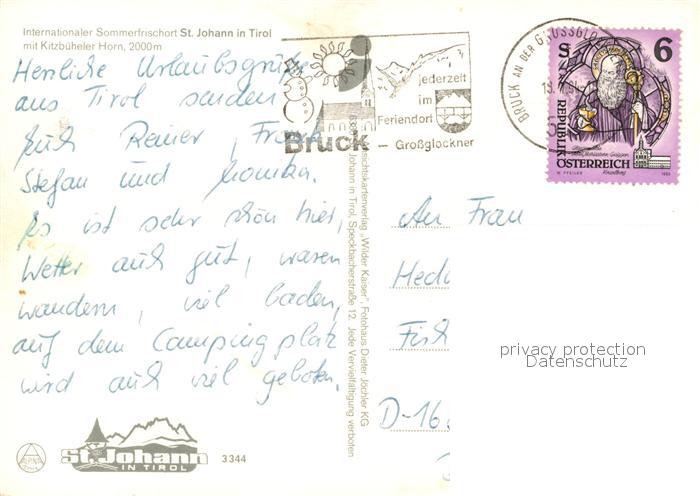 Internationaler Sommerfrischort St. Johann in Tirol
mit Kitzbüheler Horn, 2000m
Herzliche Urlaubsgrüße
aus Tirol senden
Euch Reiner,
Stefan und Monika.
Es ist sehr schön hier,
Wetter auch gut, waren
wandern, viel baden,
auf dem Campingplatz
wird auch viel geboten.
St. Johann
IN TIROL
3344
jederzeit
im
Feriendort
Bruck
– Großglockner
BRUCK AN DER GROSSGLO
S 6
REPUBLIK
ÖSTERREICH
W. PFEILER
1993
Ansichtskartenverlag „Wilder Kaiser", Fotohaus Dieter Jöchler KG
Johann in Tirol, Speckbacherstraße 12. Jede Vervielfältigung verboten
An Frau
Hed
Fis
D-16
privacy protection
Datenschutz